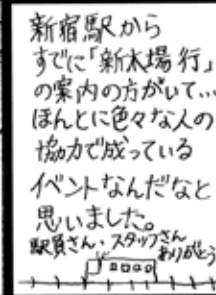 新宿駅から
すでに「新木場行」
の案内の方がいて…
ほんとに色々な人の
協力で成っている
イベントなんだなと
思いました。
駅員さん・スタッフさん
ありがとう